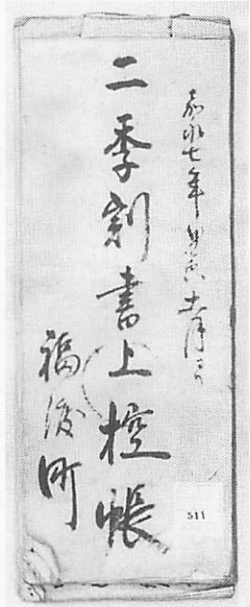 嘉永七年甲寅十一月ヨリ
二季割書上控帳
福渡町
511